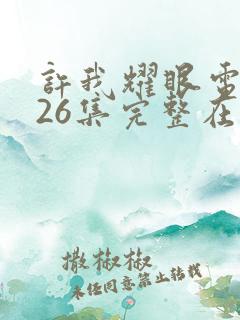 許我耀眼電
26集完整在
撒椒椒
未任同意禁止转载